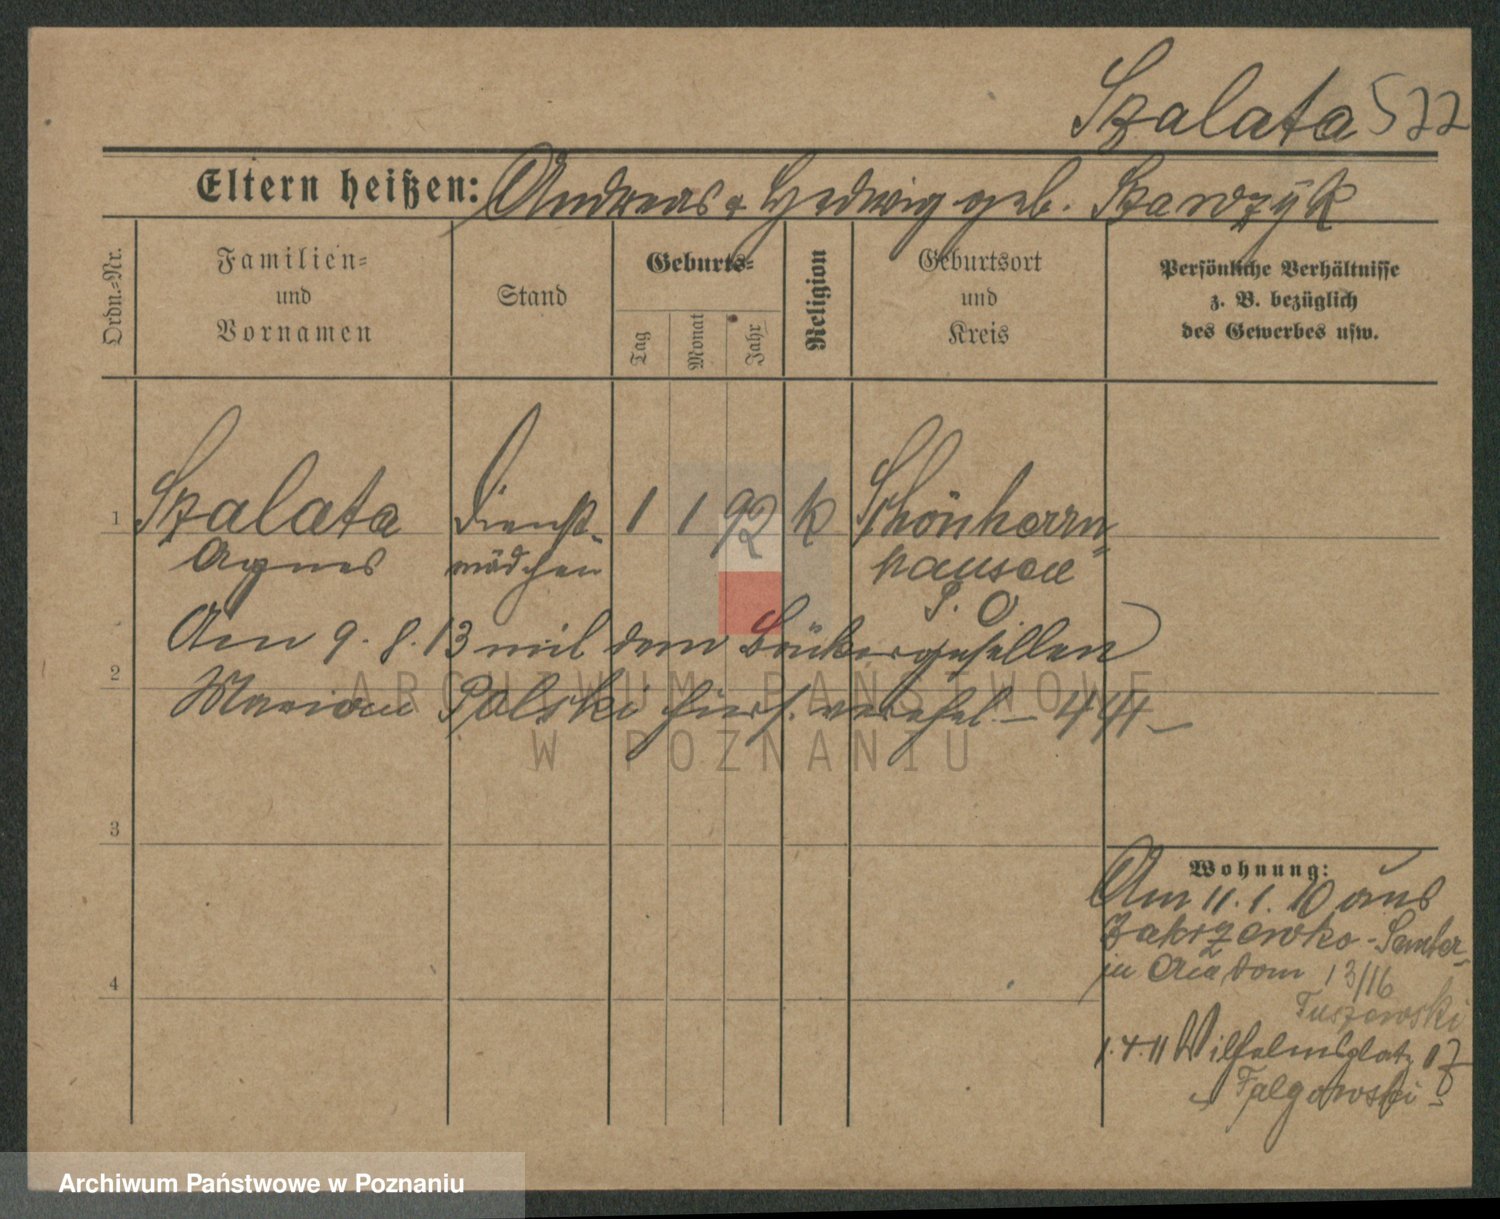 Szalata 522
Eltern heißen: Andreas & Hedwig geb. Szawzyk
Ordn.-Nr.
Familien-
und
Vornamen
Stand
Geburts-
Tag
Monat
Jahr
Religion
Geburtsort
und
Kreis
Persönliche Verhältnisse
z. B. bezüglich
des Gewerbes usw.
1 Szalata Dienst- 1 1 92 k Schönherrn-
Agnes mädchen hausen
P. O
Am 9. 8. 13 mit dem Bäckergesellen
2
Marian Polski hiers. verehel. –
3
4
Wohnung:
Am 11. 1. 10 aus
Zakrzewko - Samter-
in 13/16
Tuszewski
1. 4. 11 Wilhelmsplatz 17
Falgowski
ARCHIWUM PAŃSTWOWE
W POZNANIU
Archiwum Państwowe w Poznaniu